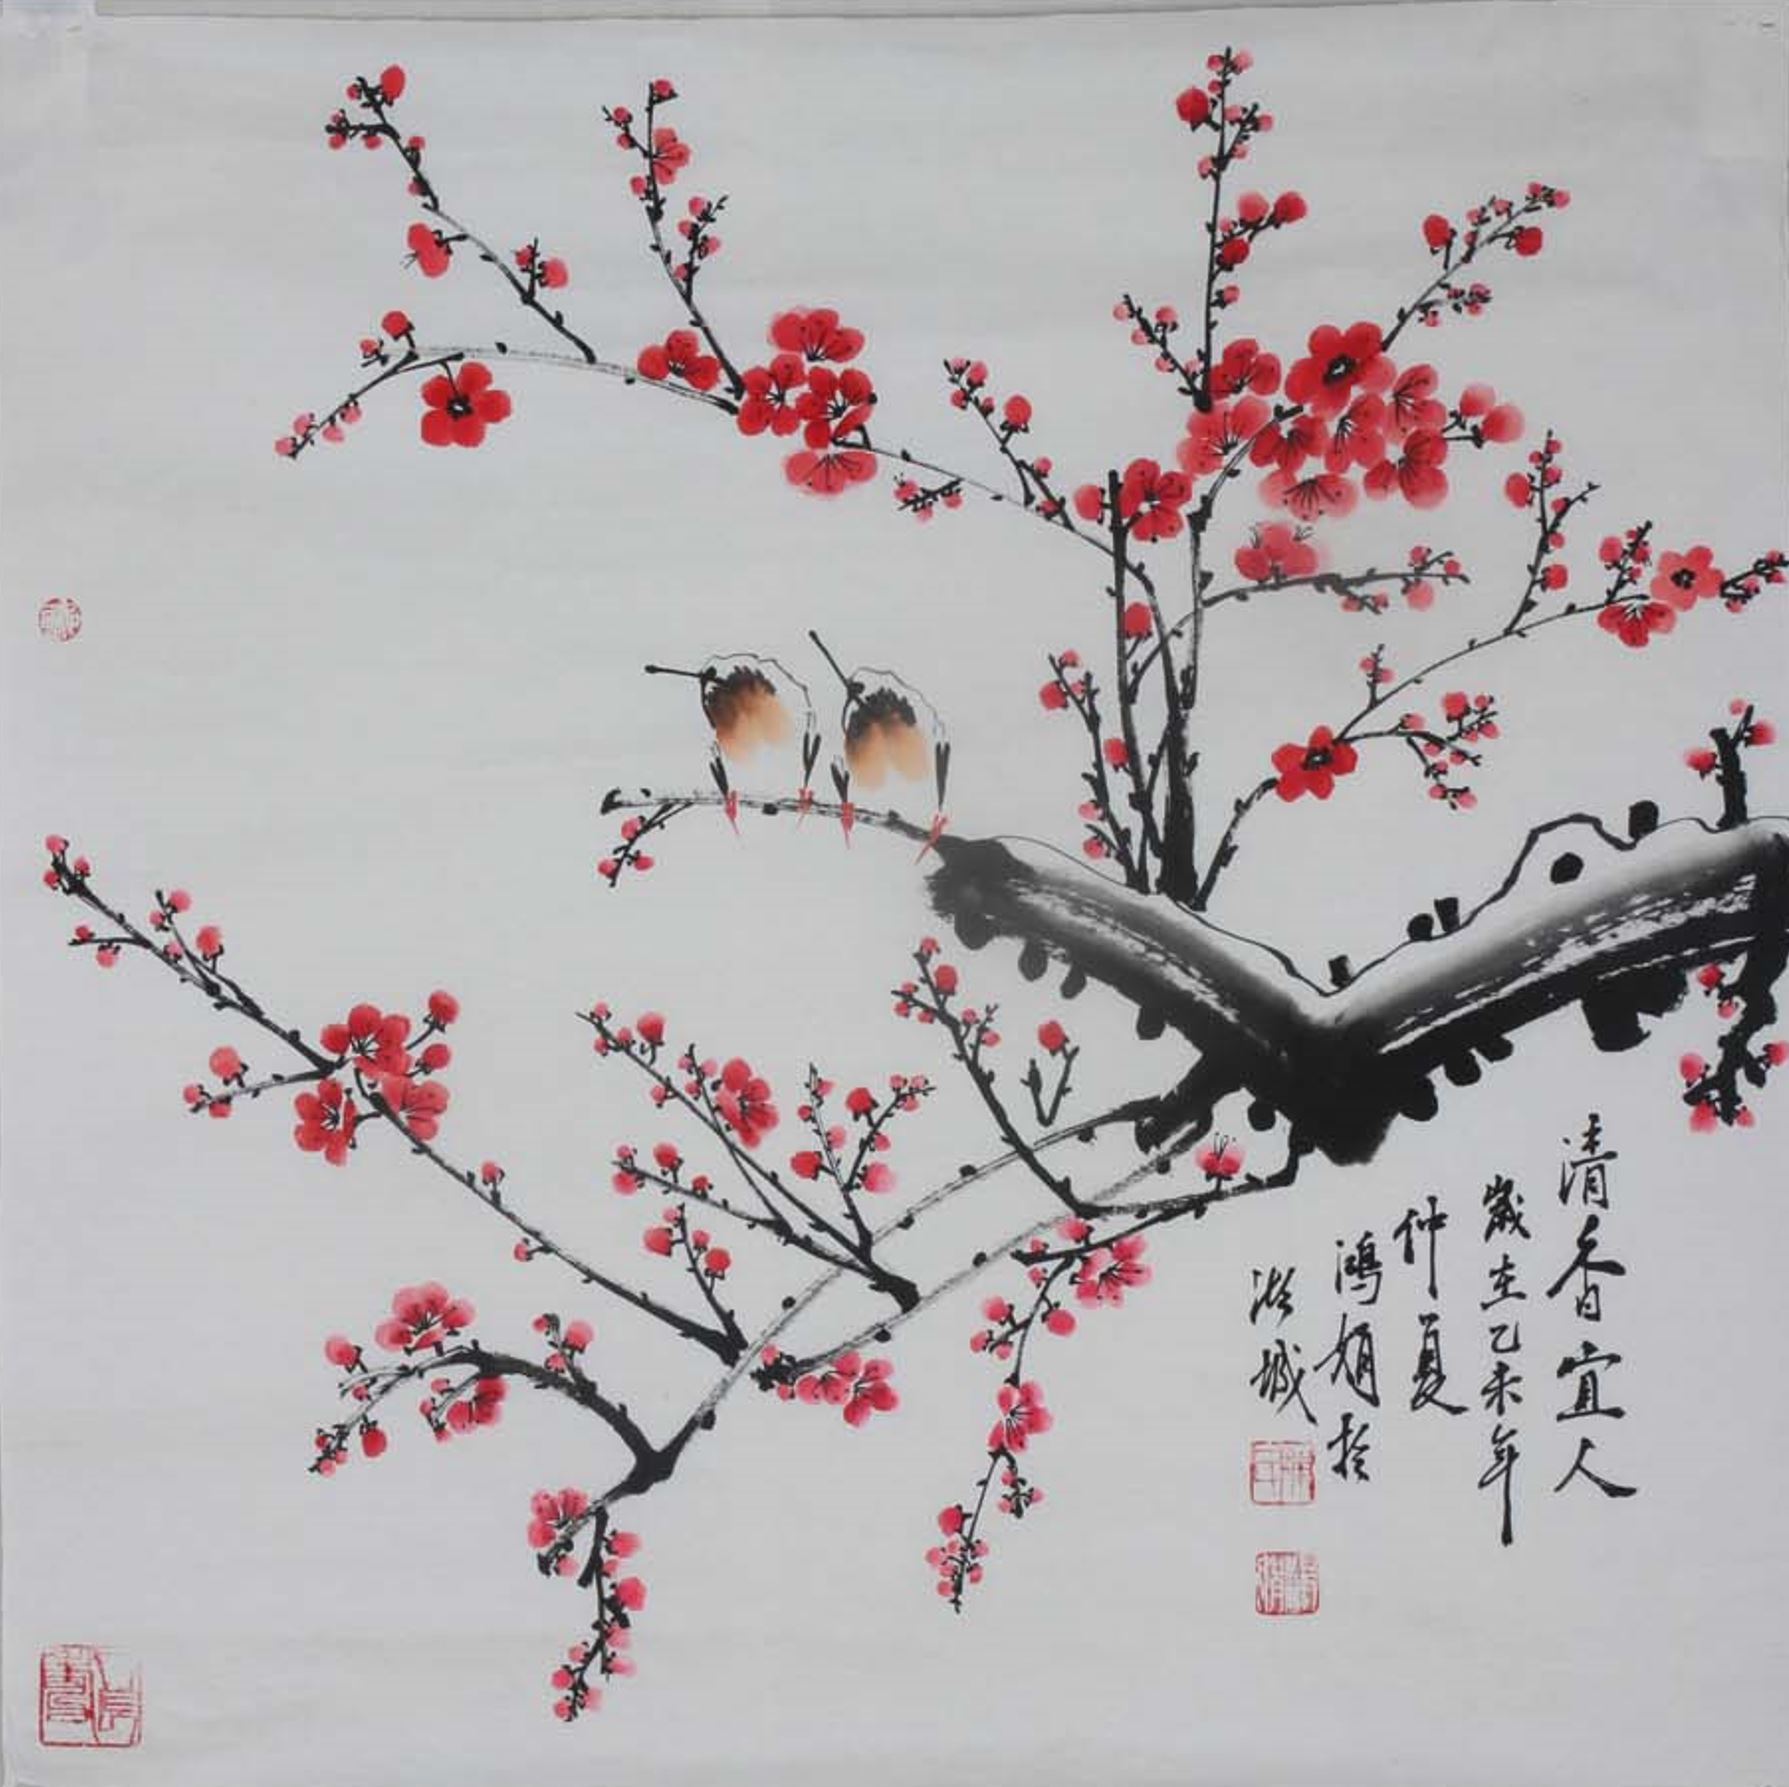 清香宜人
歲在乙未年
仲夏
鴻娟於
城